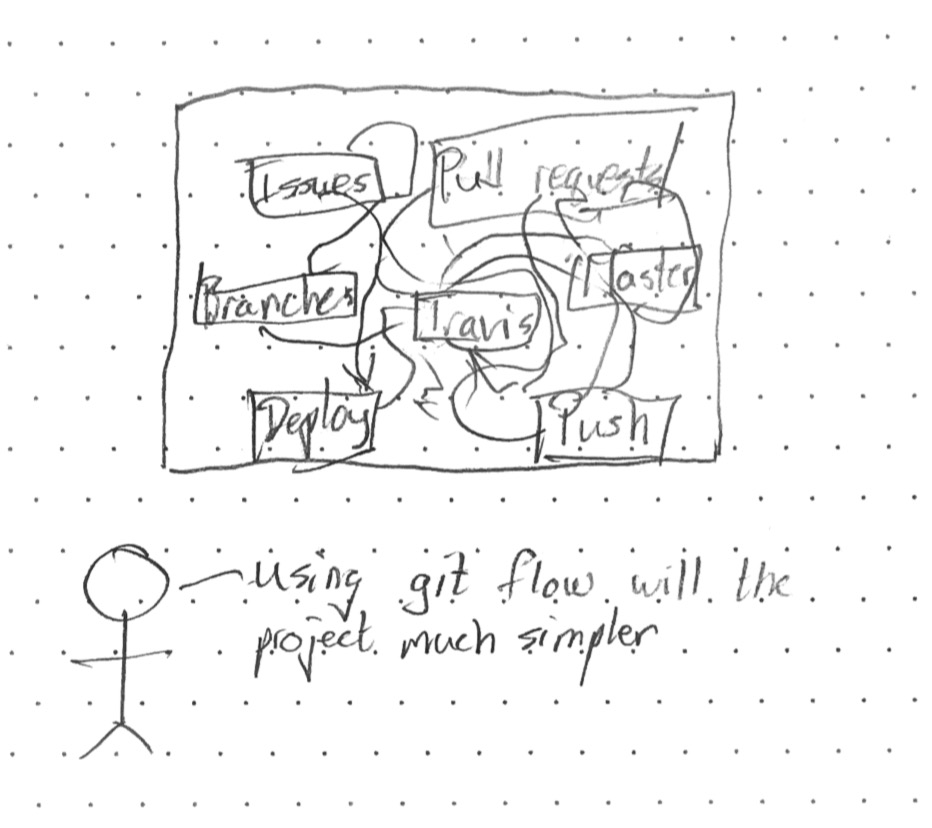 Issues
Pull requests
Branches
Travis
Master
Deploy
Push
using git flow will the
project much simpler